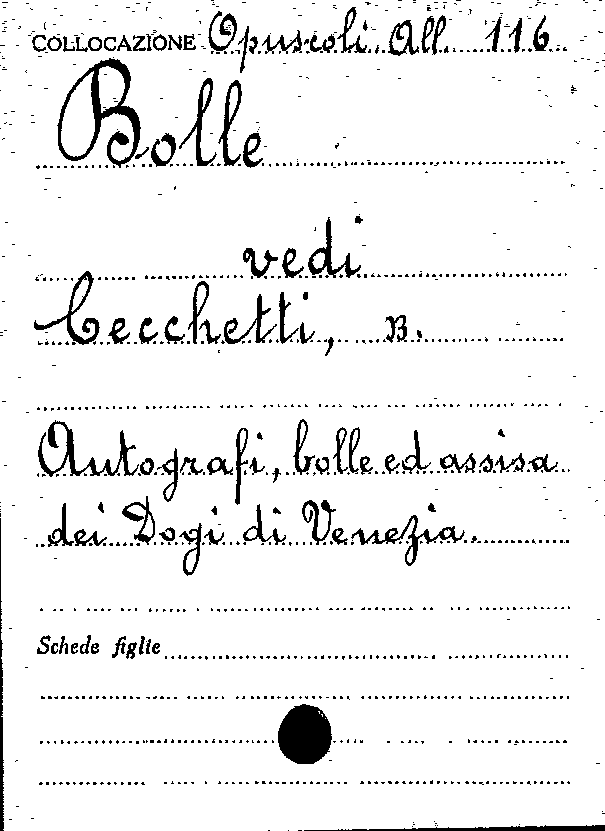 COLLOCAZIONE Opuscoli All. 116
Bolle
vedi
Cecchetti, B.
Autografi, bolle ed assisa
dei Dogi di Venezia.
Schede figlie